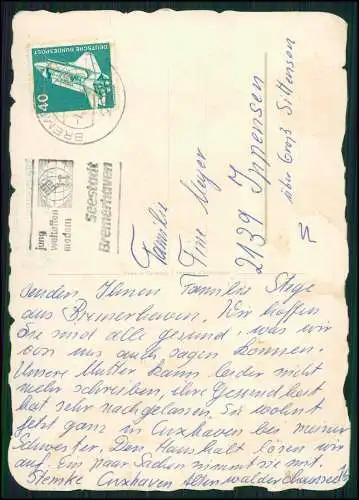 DEUTSCHE BUNDESPOST
40
BREM
jung
weltoffen
modern
Seestadt
Bremerhaven
Familie
Fine Meyer
2139 Ippensen
über Groß Sittensen
senden Ihnen Familie Stege
aus Bremerhaven. Wir hoffen
Sie sind alle gesund, was wir
von uns auch sagen können.
Unsere Mutter kann leider nicht
mehr schreiben, ihre Gesundheit
hat sehr nachgelassen, Sie wohnt
jetzt ganz in Cuxhaven bei meiner
Schwester, Den Haushalt lösen wir
auf. Ein paar Sachen nimmt sie mit.
Stemke Cuxhaven Altenwalderchaussee